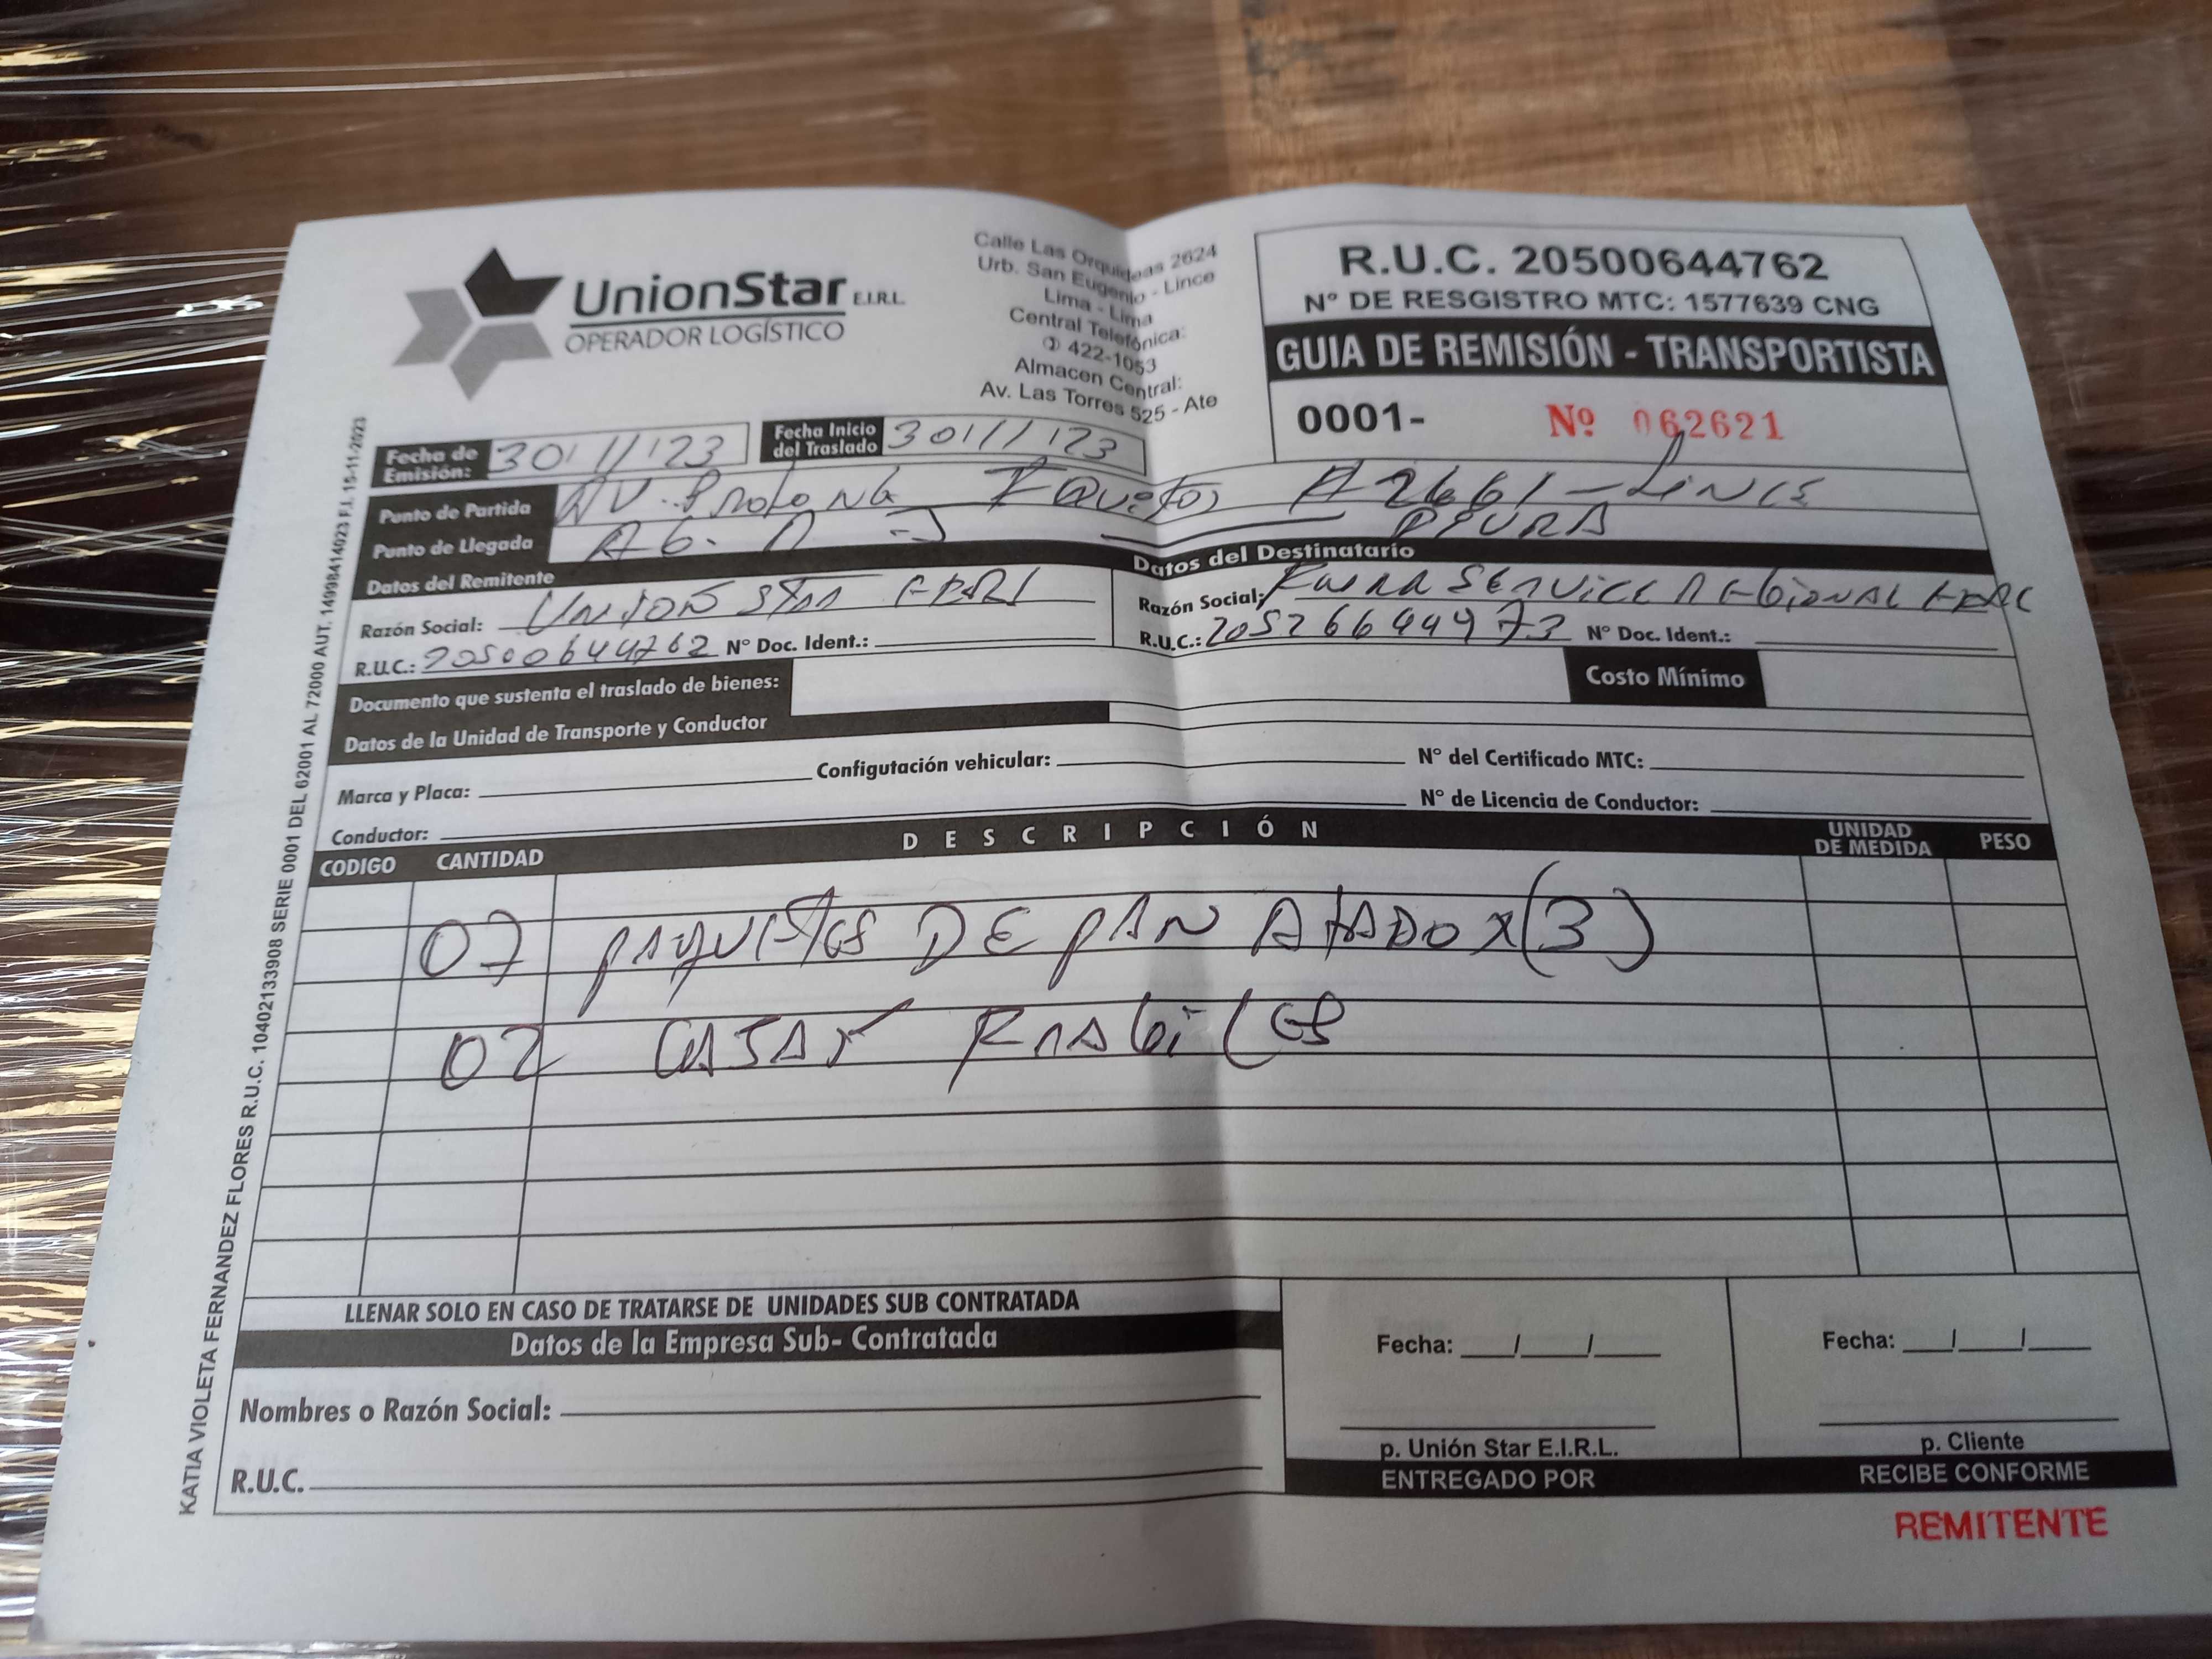 UnionStar E.I.R.L.
OPERADOR LOGÍSTICO
Calle Las Orquideas 2624
Urb. San Eugenio - Lince
Lima - Lima
Central Telefónica:
422-1053
Almacen Central:
Av. Las Torres 525 - Ate
R.U.C. 20500644762
N° DE RESGISTRO MTC: 1577639 CNG
GUIA DE REMISIÓN - TRANSPORTISTA
0001- Nº 062621
Fecha de Emisión: 30/11/23 Fecha Inicio del Traslado 30/11/23
Punto de Partida AV. Prolong Iquitos 2661 - LINCE
Punto de Llegada PIURA
Datos del Remitente
Razón Social: UNION STAR EIRL
R.U.C.: 20500644762 N° Doc. Ident.:
Datos del Destinatario
Razón Social: SERVICE REGIONAL
R.U.C.: N° Doc. Ident.:
Documento que sustenta el traslado de bienes: Costo Mínimo
Datos de la Unidad de Transporte y Conductor
Marca y Placa: Configutación vehicular: N° del Certificado MTC:
Conductor: N° de Licencia de Conductor:
CODIGO CANTIDAD DESCRIPCIÓN UNIDAD DE MEDIDA PESO
07 PAQUETES DE PAN ATADO X(3)
02 CAJAS FRAGILES
LLENAR SOLO EN CASO DE TRATARSE DE UNIDADES SUB CONTRATADA
Datos de la Empresa Sub- Contratada
Nombres o Razón Social:
R.U.C.
Fecha: / /
p. Unión Star E.I.R.L.
ENTREGADO POR
Fecha: / /
p. Cliente
RECIBE CONFORME
REMITENTE
KATIA VIOLETA FERNANDEZ FLORES R.U.C. 10402133908 SERIE 0001 DEL 62001 AL 72000 AUT. 14998414023 F.I. 15-11-2023